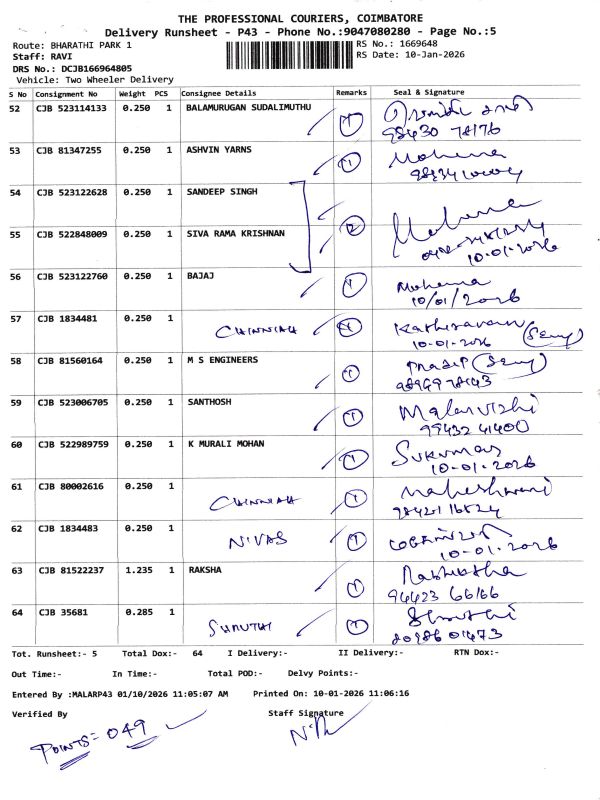 THE PROFESSIONAL COURIERS, COIMBATORE
Delivery Runsheet - P43 - Phone No.:9047080280 - Page No.:5
Route: BHARATHI PARK 1 RS No.: 1669648
Staff: RAVI RS Date: 10-Jan-2026
DRS No.: DCJB166964805
Vehicle: Two Wheeler Delivery
S No Consignment No Weight PCS Consignee Details Remarks Seal & Signature
52 CJB 523114133 0.250 1 BALAMURUGAN SUDALIMUTHU 1
98430 78176
53 CJB 81347255 0.250 1 ASHVIN YARNS 1 Mohena
54 CJB 523122628 0.250 1 SANDEEP SINGH 2 Mohena
55 CJB 522848009 0.250 1 SIVA RAMA KRISHNAN
10-01-2026
56 CJB 523122760 0.250 1 BAJAJ 1 Mohena
10/01/2026
57 CJB 1834481 0.250 1 CHINNIAH 1 Kathiravan
10-01-2026
58 CJB 81560164 0.250 1 M S ENGINEERS 1 Pradip
59 CJB 523006705 0.250 1 SANTHOSH 1 Malarvizhi
99432 41400
60 CJB 522989759 0.250 1 K MURALI MOHAN 1 Sukumar
10-01-2026
61 CJB 80002616 0.250 1 CHINNIAH 1 Maheshwari
62 CJB 1834483 0.250 1 NIVAS 1
10-01-2026
63 CJB 81522237 1.235 1 RAKSHA 1
94423 66166
64 CJB 35681 0.285 1 SHRUTHI 1 Shruthi
Tot. Runsheet:- 5 Total Dox:- 64 I Delivery:- II Delivery:- RTN Dox:-
Out Time:- In Time:- Total POD:- Delvy Points:-
Entered By :MALARP43 01/10/2026 11:05:07 AM Printed On: 10-01-2026 11:06:16
Verified By Staff Signature
POINTS = 049